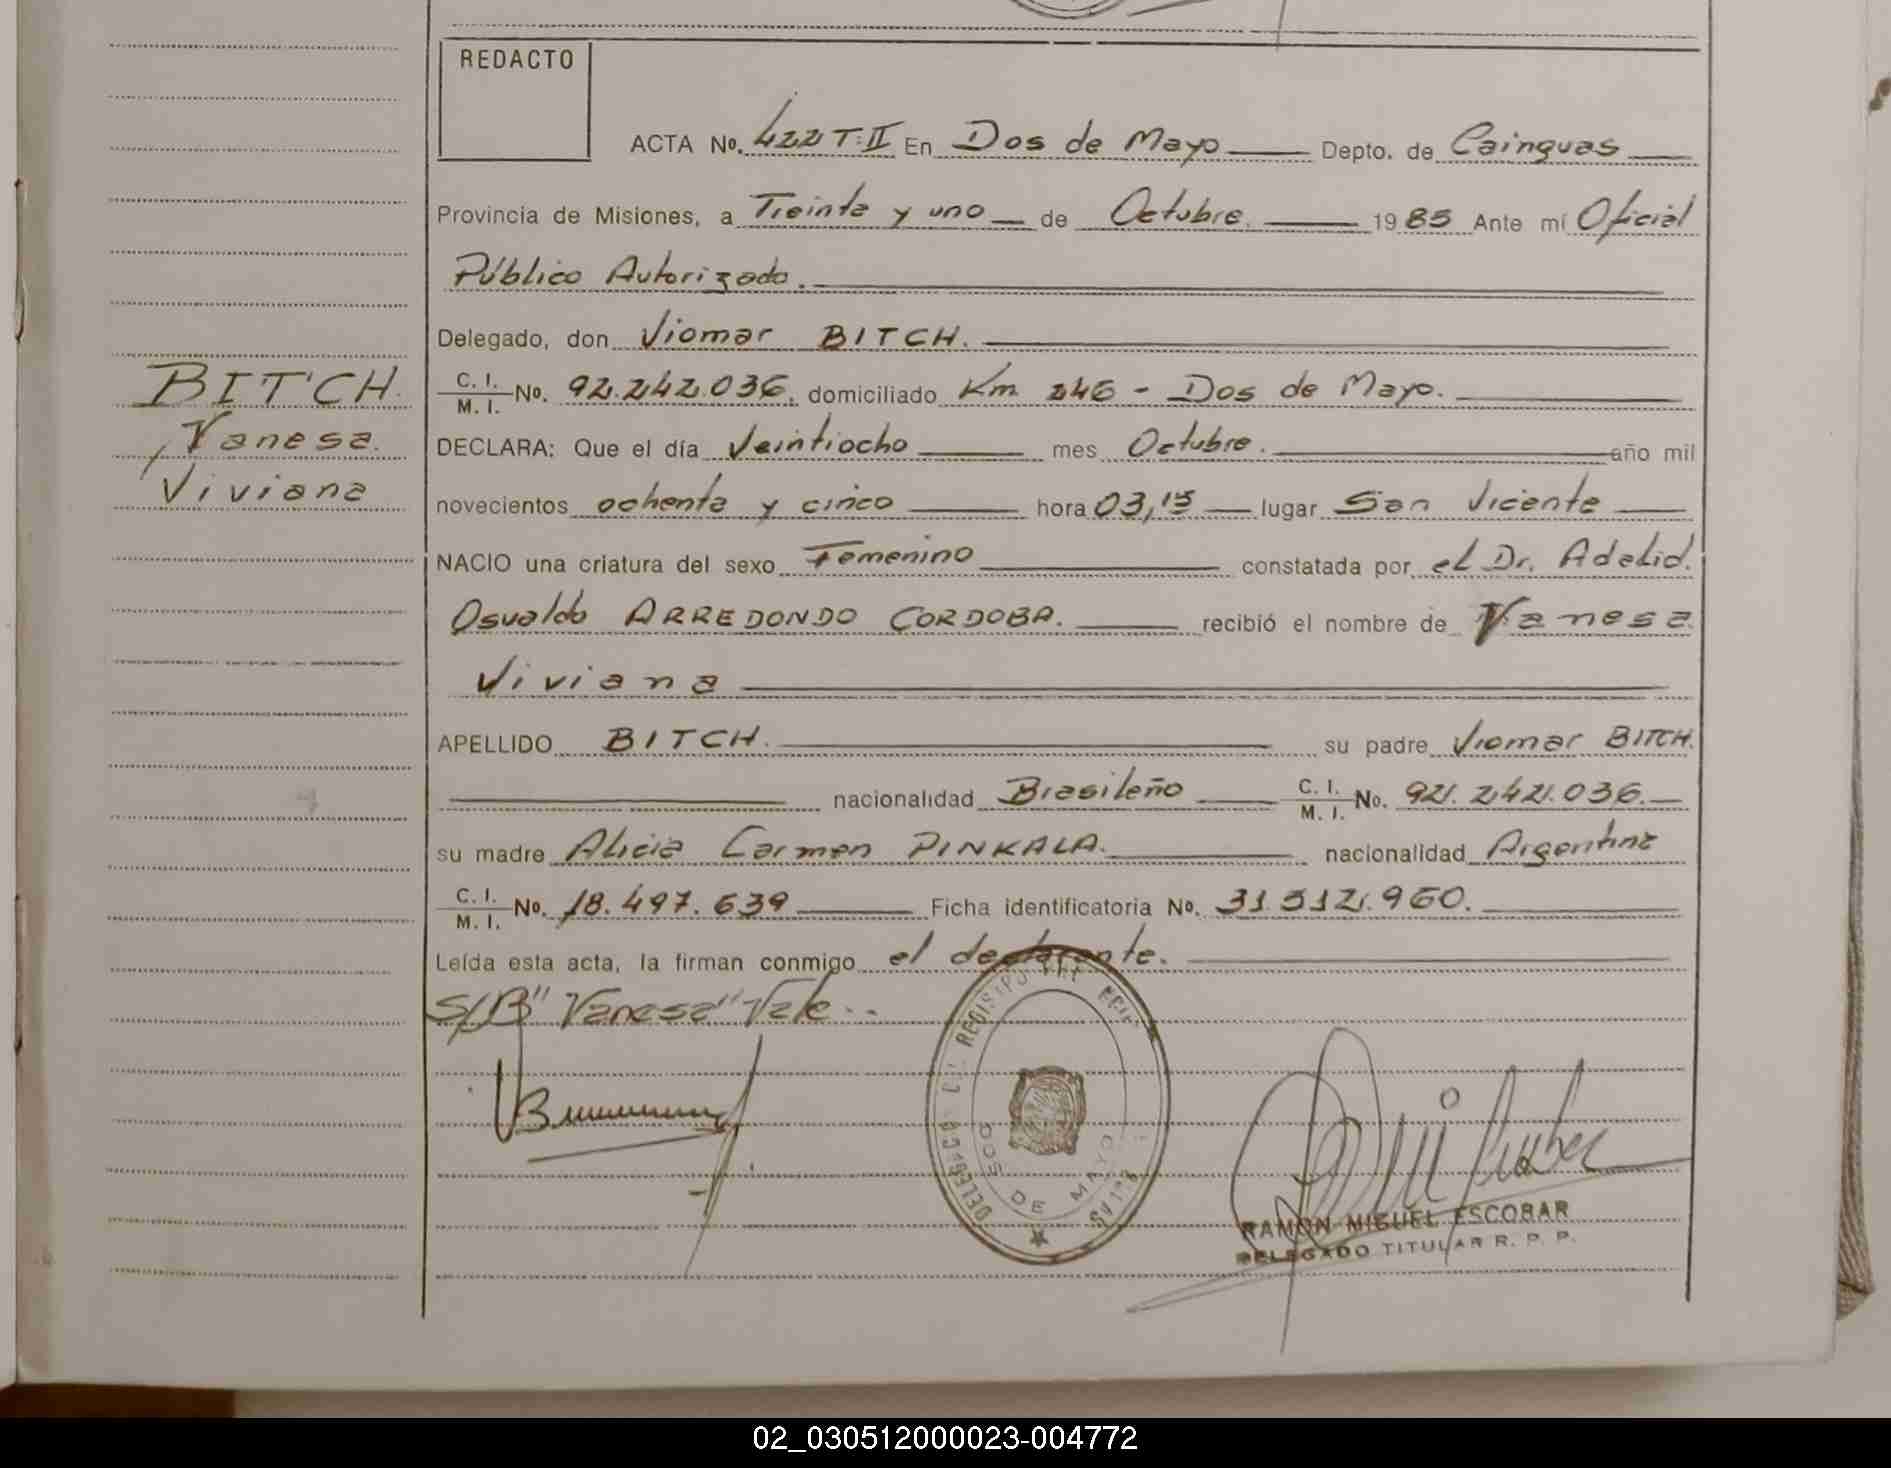 REDACTO
ACTA No. 422 T: II En Dos de Mayo Depto. de Cainguas
Provincia de Misiones, a Treinta y uno de Octubre. 1985 Ante mí Oficial
Público Autorizado.
Delegado, don Viomar BITCH.
C. I. / M. I. No. 92.242.036. domiciliado Km 246 - Dos de Mayo.
BITCH.
Vanesa
Viviana
DECLARA: Que el día Veintiocho mes Octubre. año mil
novecientos ochenta y cinco hora 03,15 lugar San Vicente
NACIO una criatura del sexo Femenino constatada por el Dr. Adelid.
Osvaldo ARREDONDO CORDOBA. recibió el nombre de Vanesa
Viviana
APELLIDO BITCH. su padre Viomar BITCH.
nacionalidad Brasileño C. I. / M. I. No. 92.242.036.
su madre Alicia Carmen PINKALA. nacionalidad Argentina
C. I. / M. I. No. 18.497.639 Ficha identificatoria No. 31.512.960.
Leída esta acta, la firman conmigo el declarante.
S/B" Vanesa" Vale..
DOS DE MAYO
RAMON MIGUEL ESCOBAR
DELEGADO TITULAR R. P. P.
02_030512000023-004772